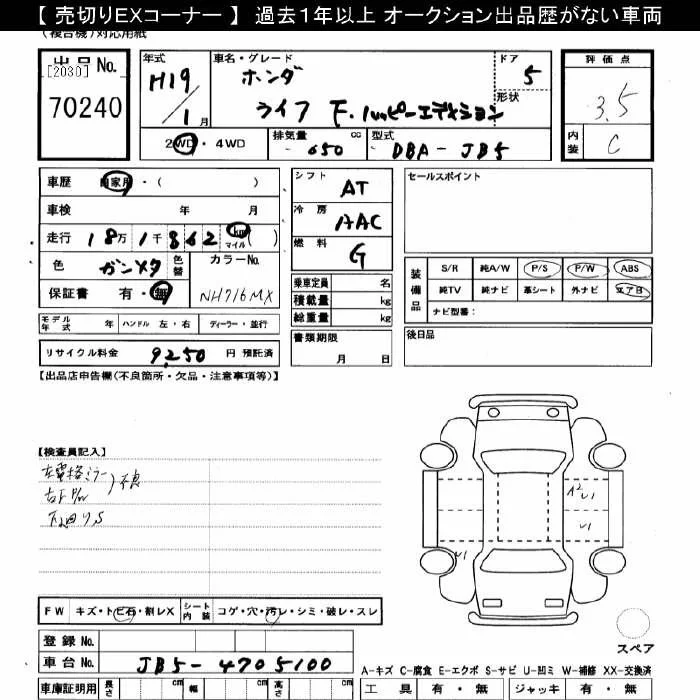 【 売切りEXコーナー 】 過去１年以上 オークション出品歴がない車両
(複合機)対応用紙
出品 No.
[2030]
70240
年式 H19 / 1 月
車名・グレード
ホンダ
ライフ F.ハッピーエディション
ドア 5
形状
2WD・4WD
排気量 650 cc
型式 DBA - JB5
評価点
3.5
内装 C
車歴 自家用・( )
車検 年 月
走行 18万1千862 km マイル ( )
色 ガンメタ 色替
カラーNo. NH716MX
保証書 有・無
モデル年式 年 ハンドル 左・右 ディーラー・並行
リサイクル料金 9,250 円 預託済
シフト AT
冷房 AAC
燃料 G
乗車定員 名
積載量 kg
総重量 kg
書類期限
月 日
セールスポイント
装備品
S/R 純A/W P/S P/W ABS
純TV 純ナビ 革シート 外ナビ エアB
ナビ型番：
後日品
【出品店申告欄(不良箇所・欠品・注意事項等)】
【検査員記入】
左電格ミラー
不良
下回りS
A2 U1
U1
U1
FW キズ・トビ石・割レX
シート内装 コゲ・穴・汚レ・シミ・破レ・スレ
登録 No.
車台 No. JB5 - 4705100
車庫証明用 長さ cm 幅 cm 高さ cm
スペア
A-キズ C-腐食 E-エクボ S-サビ U-凹ミ W-補修 XX-交換済
工具 有・無 ジャッキ 有・無